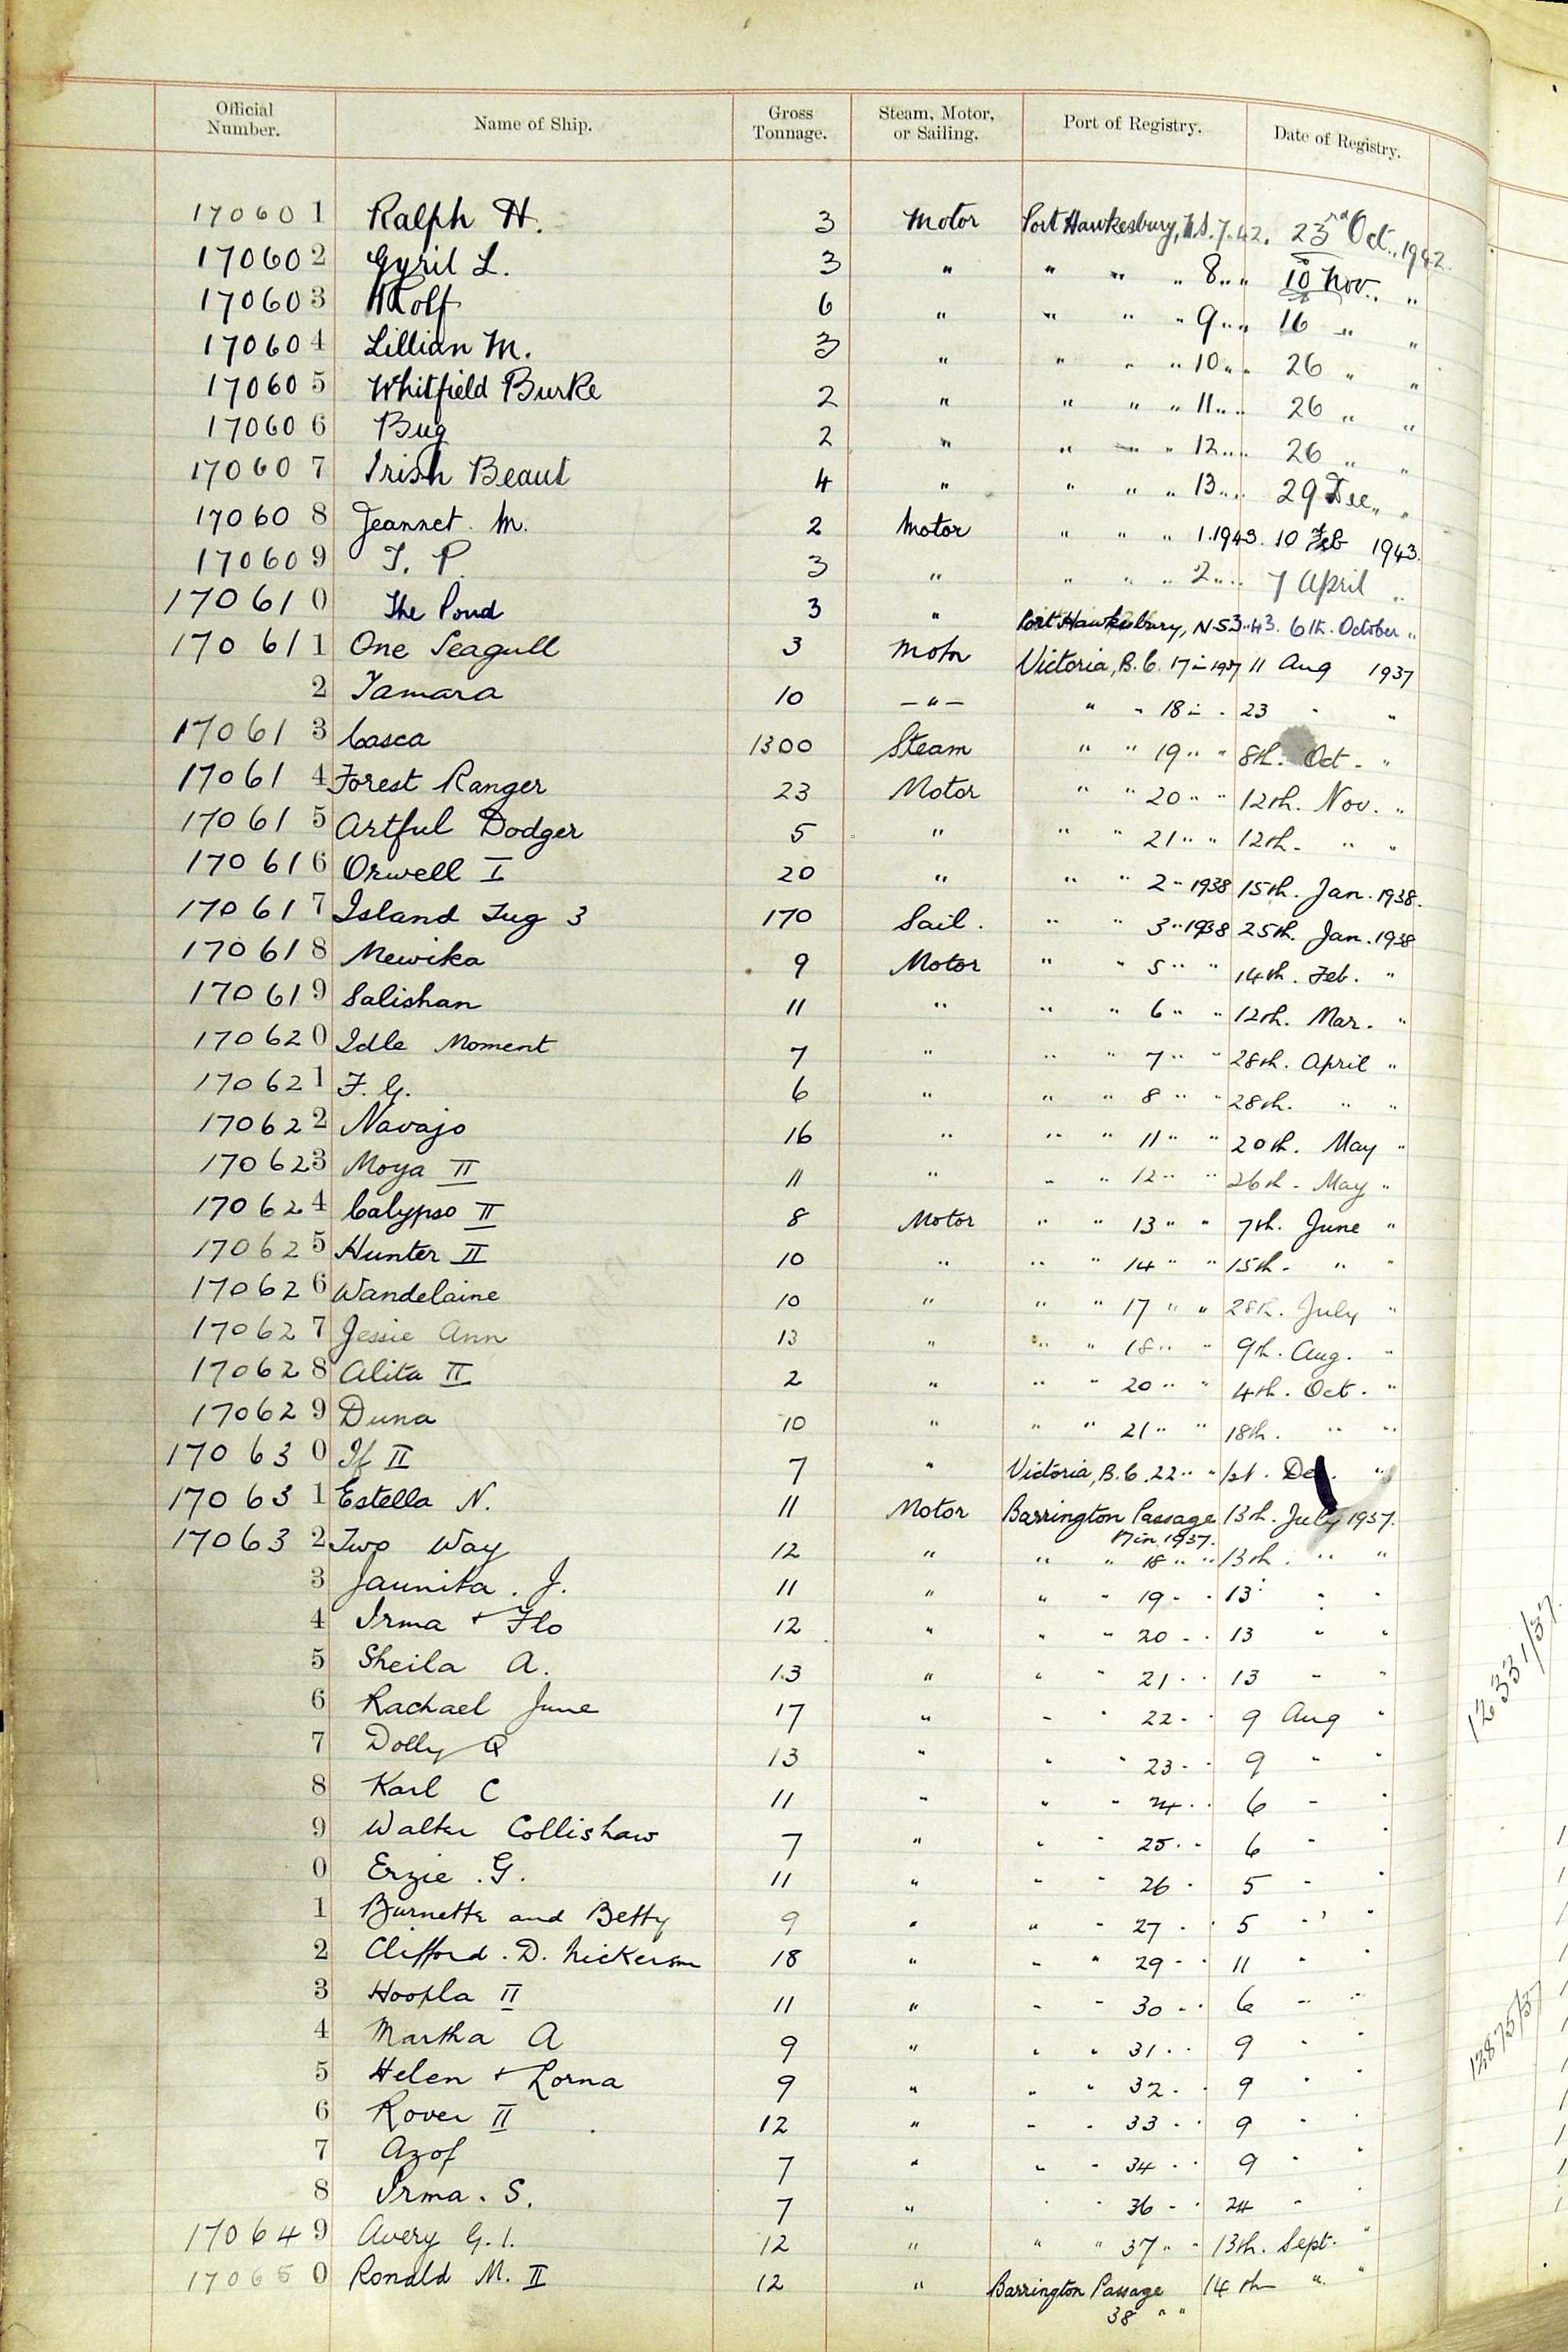 Official Number. Name of Ship. Gross Tonnage. Steam, Motor, or Sailing. Port of Registry. Date of Registry.
170601 Ralph H. 3 Motor Port Hawkesbury, N.S. 7.42. 23rd Oct., 1942.
170602 Gyril L. 3 " " " " 8 " " 10 Nov. "
170603 6 " " " " 9 " " 16 " "
170604 Lillian M. 3 " " " " 10 " " 26 " "
170605 Whitfield Burke 2 " " " " 11 " " 26 " "
170606 Bug 2 " " " " 12 " " 26 " "
170607 Irish Beaut 4 " " " " 13 " " 29 Dec. "
170608 Jeannet. M. 2 Motor " " " 1.1943. 10 Feb 1943.
170609 T. P. 3 " " " " 2 " " 7 April "
170610 The Pond 3 " Port Hawkesbury, N.S 3 " 43. 6th. October "
170611 One Seagull 3 Motor Victoria, B.C. 17 in 1937 11 Aug 1937
2 Tamara 10 — " — " " 18 in " 23 " "
170613 Casca 1300 Steam " " 19 " " 8th. Oct. "
170614 Forest Ranger 23 Motor " " 20 " " 12th. Nov. "
170615 Artful Dodger 5 " " " 21 " " 12th. " "
170616 Orwell I 20 " " " 2 " 1938 15th. Jan. 1938.
170617 Island Tug 3 170 Sail. " " 3 " 1938 25th. Jan. 1938
170618 Mewika 9 Motor " " 5 " " 14th. Feb. "
170619 Salishan 11 " " " 6 " " 12th. Mar. "
170620 Idle Moment 7 " " " 7 " " 28th. April "
170621 F. G. 6 " " " 8 " " 28th. " "
170622 Navajo 16 " " " 11 " " 20th. May "
170623 Moya II 11 " " " 12 " " 26th. May "
170624 Calypso II 8 Motor " " 13 " " 7th. June "
170625 Hunter II 10 " " " 14 " " 15th. " "
170626 Wandelaine 10 " " " 17 " " 28th. July "
170627 Jessie Ann 13 " " " 18 " " 9th. Aug. "
170628 Alita II 2 " " " 20 " " 4th. Oct. "
170629 Duna 10 " " " 21 " " 18th. " "
170630 If II 7 " Victoria, B.C. 22 " " 1st. Dec. "
170631 Estella N. 11 Motor Barrington Passage 13th. July 1937.
17 in 1937.
170632 Two Way 12 " " " 18 " " 13th. " "
3 Jaunita. J. 11 " " " 19 " " 13 " "
4 Irma + Flo 12 " " " 20 " " 13 " "
5 Sheila A. 13 " " " 21 " " 13 " "
6 Rachael June 17 " " " 22 " " 9 Aug "
7 Dolly Q 13 " " " 23 " " 9 " "
8 Karl C 11 " " " 24 " " 6 " "
9 Walter Collishaw 7 " " " 25 " " 6 " "
0 Erzie. G. 11 " " " 26 " 5 " "
1 Burnette and Betty 9 " " " 27 " " 5 " "
2 Clifford. D. Nickerson 18 " " " 29 " " 11 " "
3 Hoopla II 11 " " " 30 " " 6 " "
4 Martha A 9 " " " 31 " " 9 " "
5 Helen + Lorna 9 " " " 32 " " 9 " "
6 Rover II 12 " " " 33 " " 9 " "
7 Azof 7 " " " 34 " " 9 " "
8 Irma. S. 7 " " " 36 " " 24 " "
170649 Avery G. I. 12 " " " 37 " " 13th. Sept. "
170650 Ronald M. II 12 " Barrington Passage 14th " "
38 " "
12331/37
12875/37